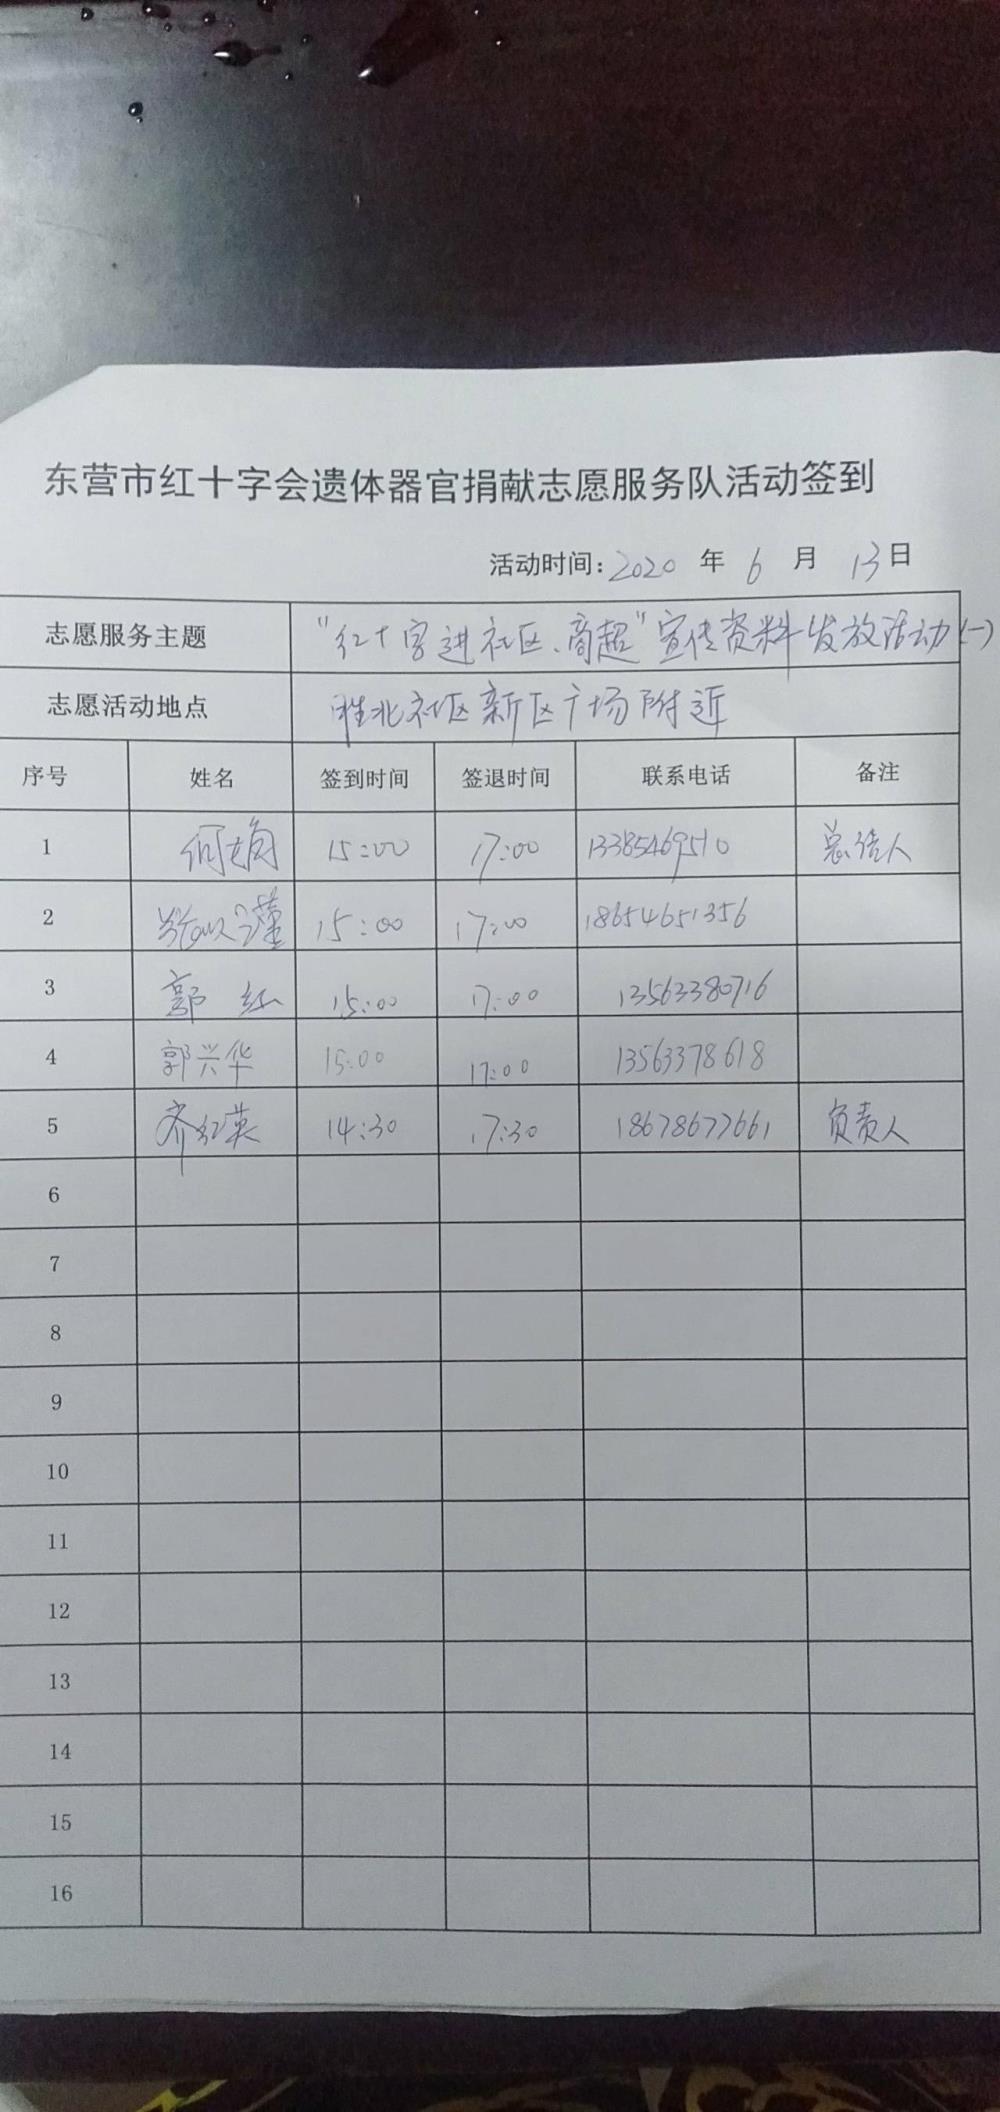 东营市红十字会遗体器官捐献志愿服务队活动签到
活动时间：2020 年 6 月 13 日
志愿服务主题 "红十字进社区、商超"宣传资料发放活动(一)
志愿活动地点 胜北社区新区广场附近
序号 姓名 签到时间 签退时间 联系电话 备注
1 何 15:00 17:00 13385469510 总结人
2 15:00 17:00 18654651356
3 郭红 15:00 17:00 13563380716
4 郭兴华 15:00 17:00 13563378618
5 齐红英 14:30 17:30 18678677661 负责人
6
7
8
9
10
11
12
13
14
15
16